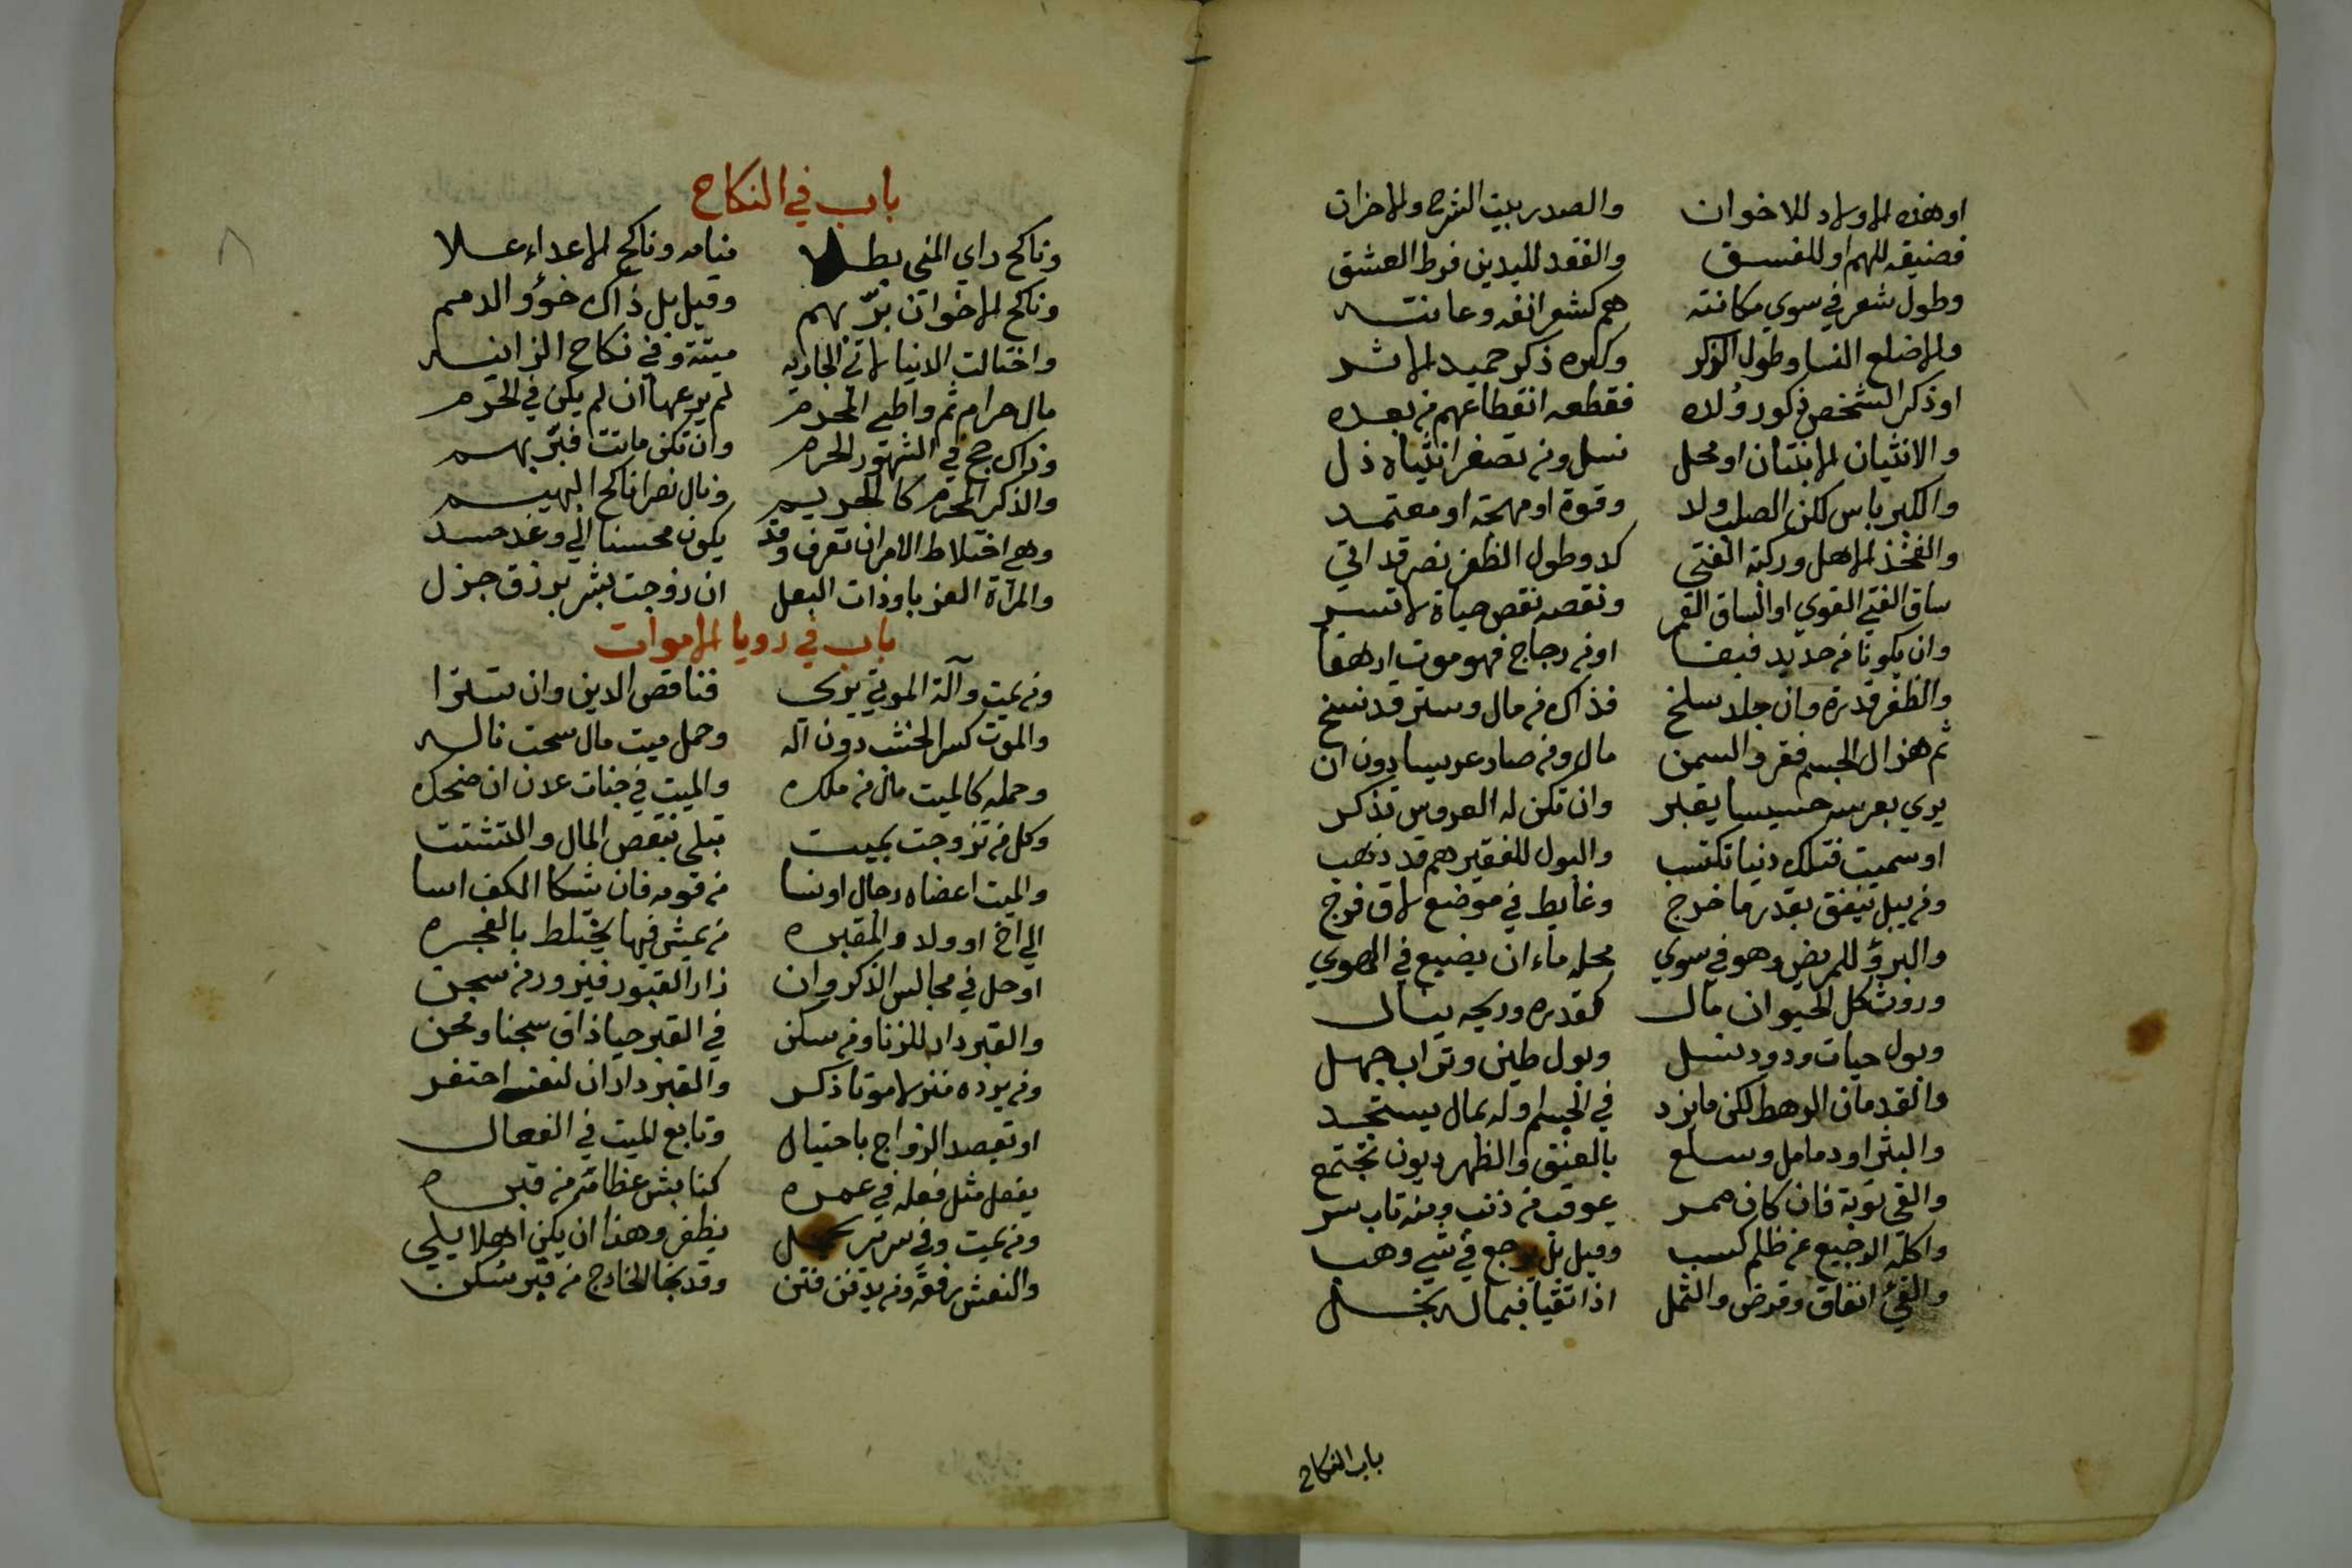 او هذه الاولاد للاخوان والصدر بيت الشره والاحزان
فضيقه للهم او للفسق والفقد لليدين فرط العشق
وطول شعر في سوي مكانته هم كشعر انفه وعانته
والاضلع النسا وطول الذكر وكبره ذكر حميد الاثر
او ذكر الشخص ذكور ولده فقطعه انقطاعهم من بعده
والانثيان الابنتان او محل نسل ومن تصغر انثياه ذل
والكبر باس لكن الصلب ولد وقوة او مهجة او معتمد
والفخذ الاهل وركبة الفتي كد وطول الظفر نصر قد اتي
ساق الفتي القوي او الساق القمر ونقصه نقص حياة لا تسر
وان يكونا من حديد فبقا او من زجاج فهو موت ارهقا
والظفر قدرة وان جلد سلخ فذاك من مال وستر قد نسخ
ثم هزال الجسم فقر والسمن مال ومن صار عريسا دون ان
يري بعرسه حسيسا يقبر وان تكن له العروس تذكر
او سميت فتلك دنيا تكتسب والبول للفقير هم قد ذهب
ومن يبل ينفق بقدر ما خرج وغايط في موضع لاق فرج
والبرؤ للمريض وهو في سوي محله ماء ان يضيع في الهوي
وروث كل الحيوان مال كقدره وريحه ينال
وبول حيات ودود نسل وبول طين وتراب جهل
والقدمان الرهط لكن ما يزد في الجسم او له بمال يستجد
والبثر او دمامل وسلع بالعنق والظهر ديون تجتمع
والقي توبة فان كان همر عوقب من ذنب ومنه تاب سر
واكله الرجيع عن ظلم كسب وقيل بل يرجع في شي وهب
والقئ انفاق وقرض والثمل اذا تقيا فبماله بخل
باب النكاح
باب في النكاح
وناكح راي المني بطلا منامه وناكح الاعداء علا
وناكح الاخوان بر بهم وقيل بل ذاك خؤو الدمم
واختالت الانيا لاتي الجاريه ميتة وفي نكاح الزانيه
مال حرام ثم واطي المحرم لم يرعها ان لم يكن في الحرم
وذاك حج في الشهور الحرم وان تكن ماتت فبر بهم
والذكر المحرم كالحريم ونال نصرا ناكح البهيم
وهي اختلاط الامر ان تعرف وقد يكون محسنا الي وغد حسد
والمراة العزبا وذات البعل ان زوجت بشر برزق جزل
باب في رويا الاموات
ومن يمت وآلة الموتي يري فناقص الدين وان تسترا
والموت كسر الخشب دون اله وحمل ميت مال سحت ناله
وحمله كالميت مال من ملك والميت في جنات عدن ان ضحك
وكل من تزوجت بميت تبلي بنقص المال والتشتت
والميت اعضاه رجال او نسا من قومه فان شكا الكف اسا
الي اخ او ولد والمقبره من يمش فيها يختلط بالفجره
او حل في مجالس الذكر وان زار القبور فيزور من سجن
والقبر دار للزنا ومن سكن في القبر حيا ذاق سجنا ومحن
ومن يرده منزلا موتا ذكر والقبر دار ان لنفسه احتفر
او تقصد الزواج باحتيال وتابع الميت في الفعال
يفعل مثل فعله في عمره كنابش عظامه من قبره
ومن يمت وفي سرير يحمل يظفر وهذا ان يكن اهلا يلي
والنعش رفعة ومن يدفن فتن وقد نجا الخارج من قبر سكن